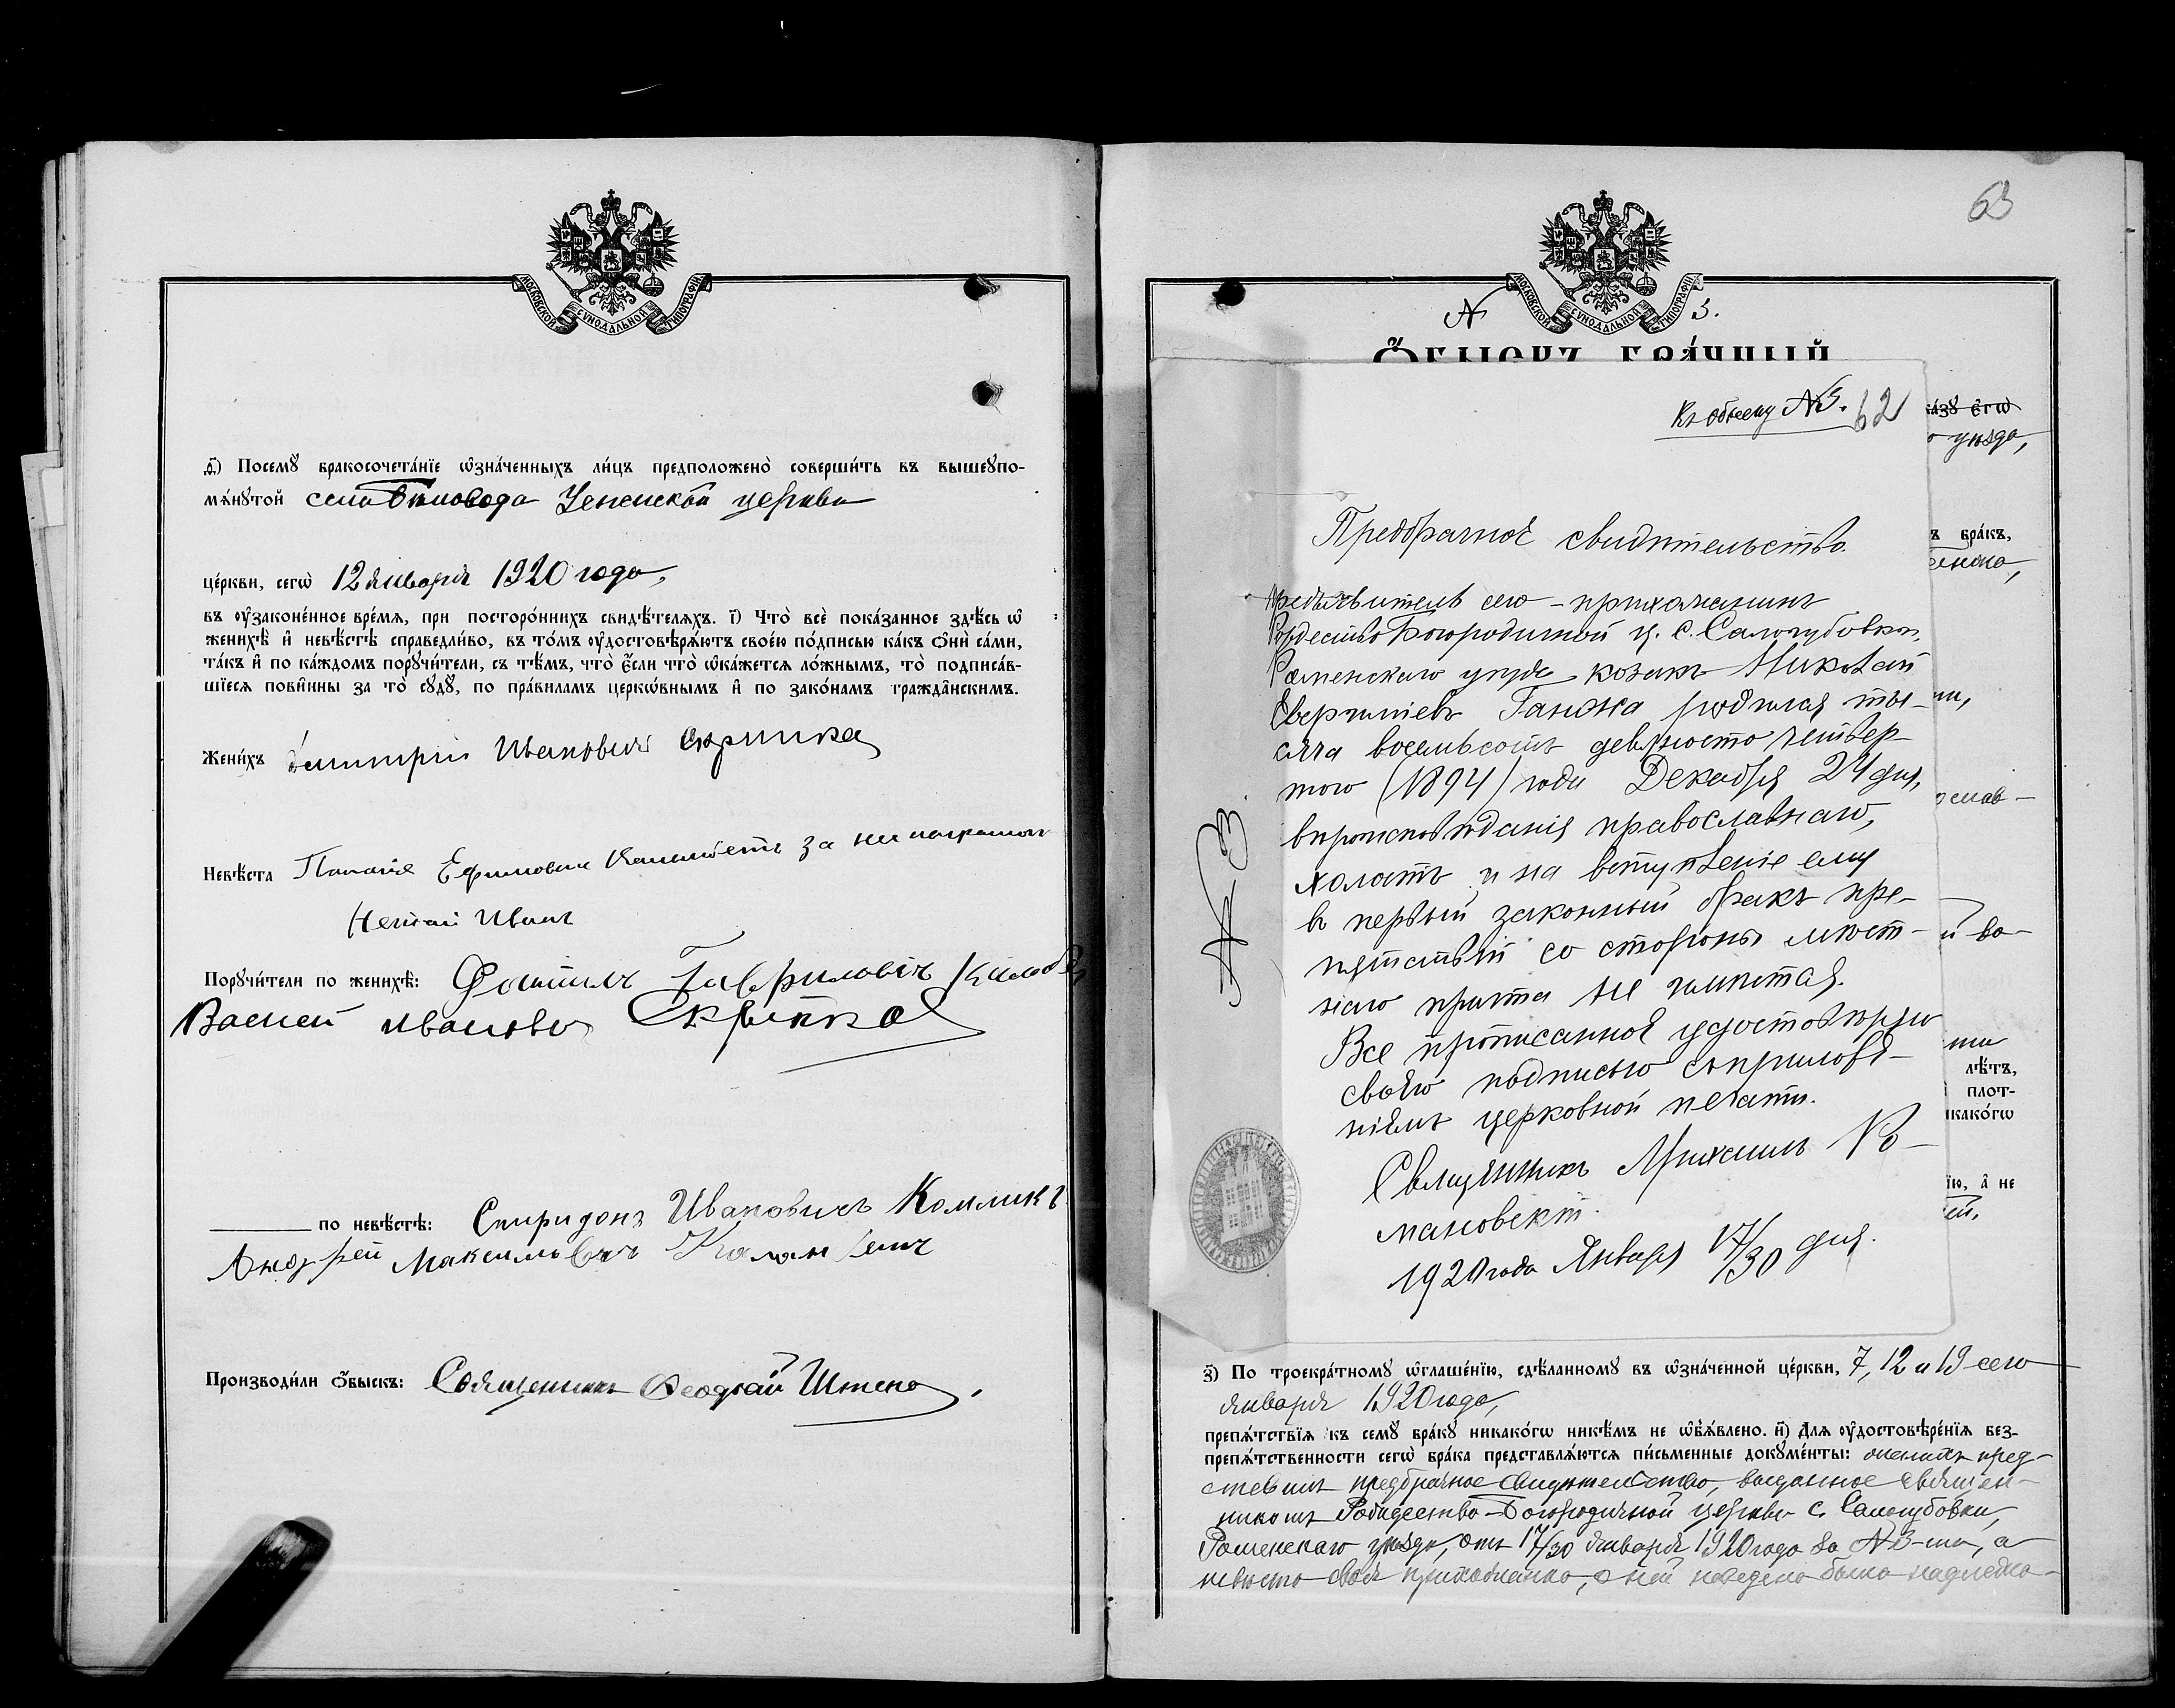 МОСКОВСКОЙ СѴНОДАЛЬНОЙ ТИПОГРАФІИ
ѳ҃) Посемꙋ бракосочета́нїе ѡ҆зна́ченныхъ ли́цъ предположено̀ соверши́ть въ вышеꙋпо-
мѧ́нꙋтой села Успенской церкви
це́ркви, сегѡ̀ 12 января 1920 года,
въ ᲂу҆законе́нное вре́мѧ, при посторо́ннихъ свидѣ́телѧхъ. і҃) Что̀ всѐ пока́занное здѣ́сь ѡ҆
женихѣ̀ и҆ невѣ́стѣ справедли́во, въ то́мъ ᲂу҆достовѣрѧ́ютъ свое́ю по́дписью ка́къ ѻ҆нѝ са́ми,
та́къ и҆ по ка́ждомъ порꙋчи́тели, съ тѣ́мъ, что̀ є҆́сли что̀ ѡ҆ка́жетсѧ ло́жнымъ, то̀ подписа́в-
шїесѧ пови́нны за то̀ сꙋдꙋ̀, по пра́виламъ церко́внымъ и҆ по зако́намъ гражда́нскимъ.
Жени́хъ Димитрій Ивановичъ Скрипка
Невѣ́ста Ефимовна за неграмотн
Иванъ
Порꙋчи́тели по женихѣ̀: Гавриловичъ
Василій Иванович Скрыпка
по невѣ́стѣ: Спиридонъ Ивановичъ Комликъ
Андрей Максимовичъ
Производи́ли ѻ҆́быскъ: Священникъ Штепа.
63
МОСКОВСКОЙ СѴНОДАЛЬНОЙ ТИПОГРАФІИ
№ 3.
Ѻ҆́БЫСКЪ БРА́ЧНЫЙ
Къ обыску №3. 62
ка́зꙋ є҆гѡ̀
уѣзда,
ъ бра́къ,
Предбрачное свидѣтельство.
Предъявитель сего - прихожанинъ
Рождество Богородичной ц. с. Салогубовки,
Роменскаго уѣзда козакъ Николай
Ганжа родился ты-
сяча восемьсотъ девяносто четвер-
того (1894) года Декабря 24 дня,
вѣроисповѣданія православнаго,
холостъ и на вступленіе ему
въ первый законный бракъ пре-
пятствій со стороны мѣст-
наго причта не имѣется.
Все прописанное удостовѣряю
своею подписью съ приложе-
ніемъ церковной печати.
Священникъ Михаилъ Ро-
мановскій.
1920 года Января 17/30 дня.
№ 3.
ослав-
лѣ́тъ,
плот-
никако́гѡ
їю, а҆ не
з҃) По троекра́тномꙋ ѡ҆глаше́нїю, сдѣ́ланномꙋ въ ѡ҆зна́ченной це́ркви, 7, 12 и 19 сего
января 1920 года,
препѧ́тствїѧ къ семꙋ̀ бра́кꙋ никако́гѡ никѣ́мъ не ѡ҆б̾ѧ́влено. и҃) Длѧ ᲂу҆достовѣре́нїѧ без-
препѧ́тственности сегѡ̀ бра́ка представлѧ́ютсѧ пи́сьменные докꙋме́нты: женихъ пред-
ставилъ предбрачное свидѣтельство, выданное священ-
никомъ Рождество-Богородичной церкви с. Салогубовки,
Роменскаго уѣзда, отъ 17/30 января 1920 года за №3-мъ, а
невѣста своя прихожанка, о ней